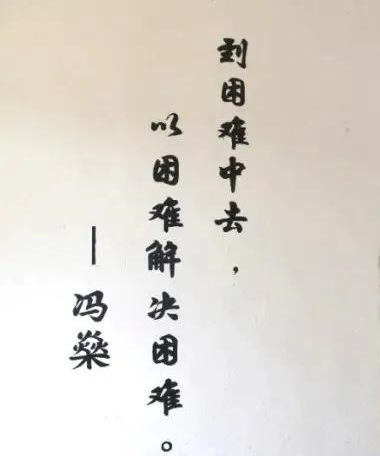 到困难中去，
以困难解决困难。
—冯燊